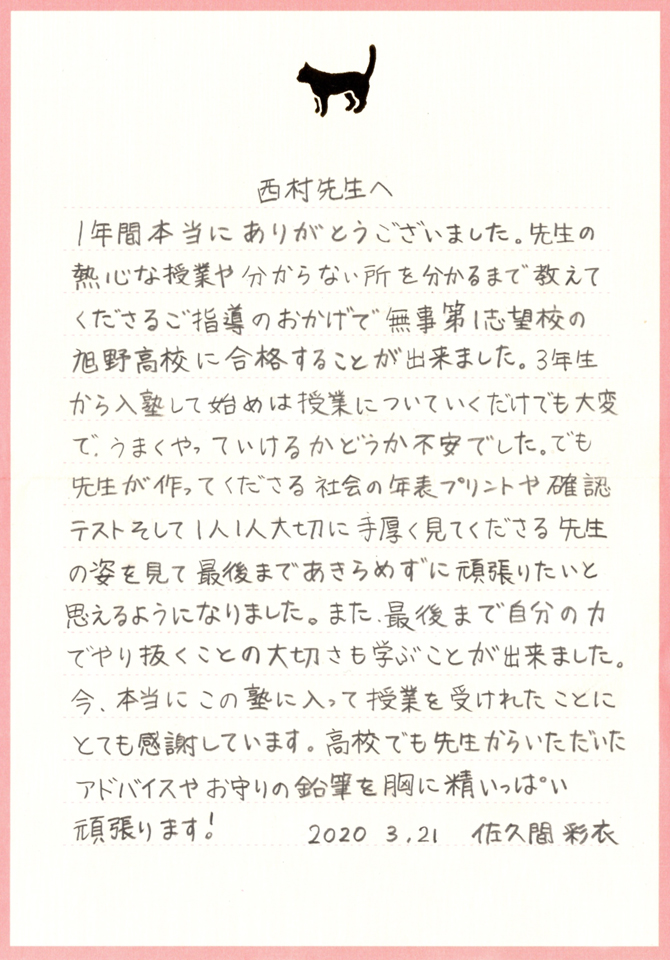 西村先生へ
1年間本当にありがとうございました。先生の
熱心な授業や分からない所を分かるまで教えて
くださるご指導のおかげで無事第1志望校の
旭野高校に合格することが出来ました。3年生
から入塾して始めは授業についていくだけでも大変
で、うまくやっていけるかどうか不安でした。でも
先生が作ってくださる社会の年表プリントや確認
テストそして1人1人大切に手厚く見てくださる先生
の姿を見て最後まであきらめずに頑張りたいと
思えるようになりました。また、最後まで自分の力
でやり抜くことの大切さも学ぶことが出来ました。
今、本当にこの塾に入って授業を受けれたことに
とても感謝しています。高校でも先生からいただいた
アドバイスやお守りの鉛筆を胸に精いっぱい
頑張ります!
2020 3.21 佐久間 彩衣